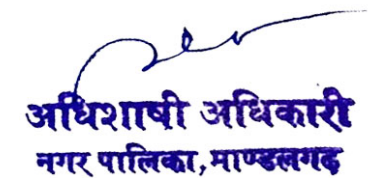 अधिशाषी अधिकारी
नगर पालिका, माण्डलगढ़